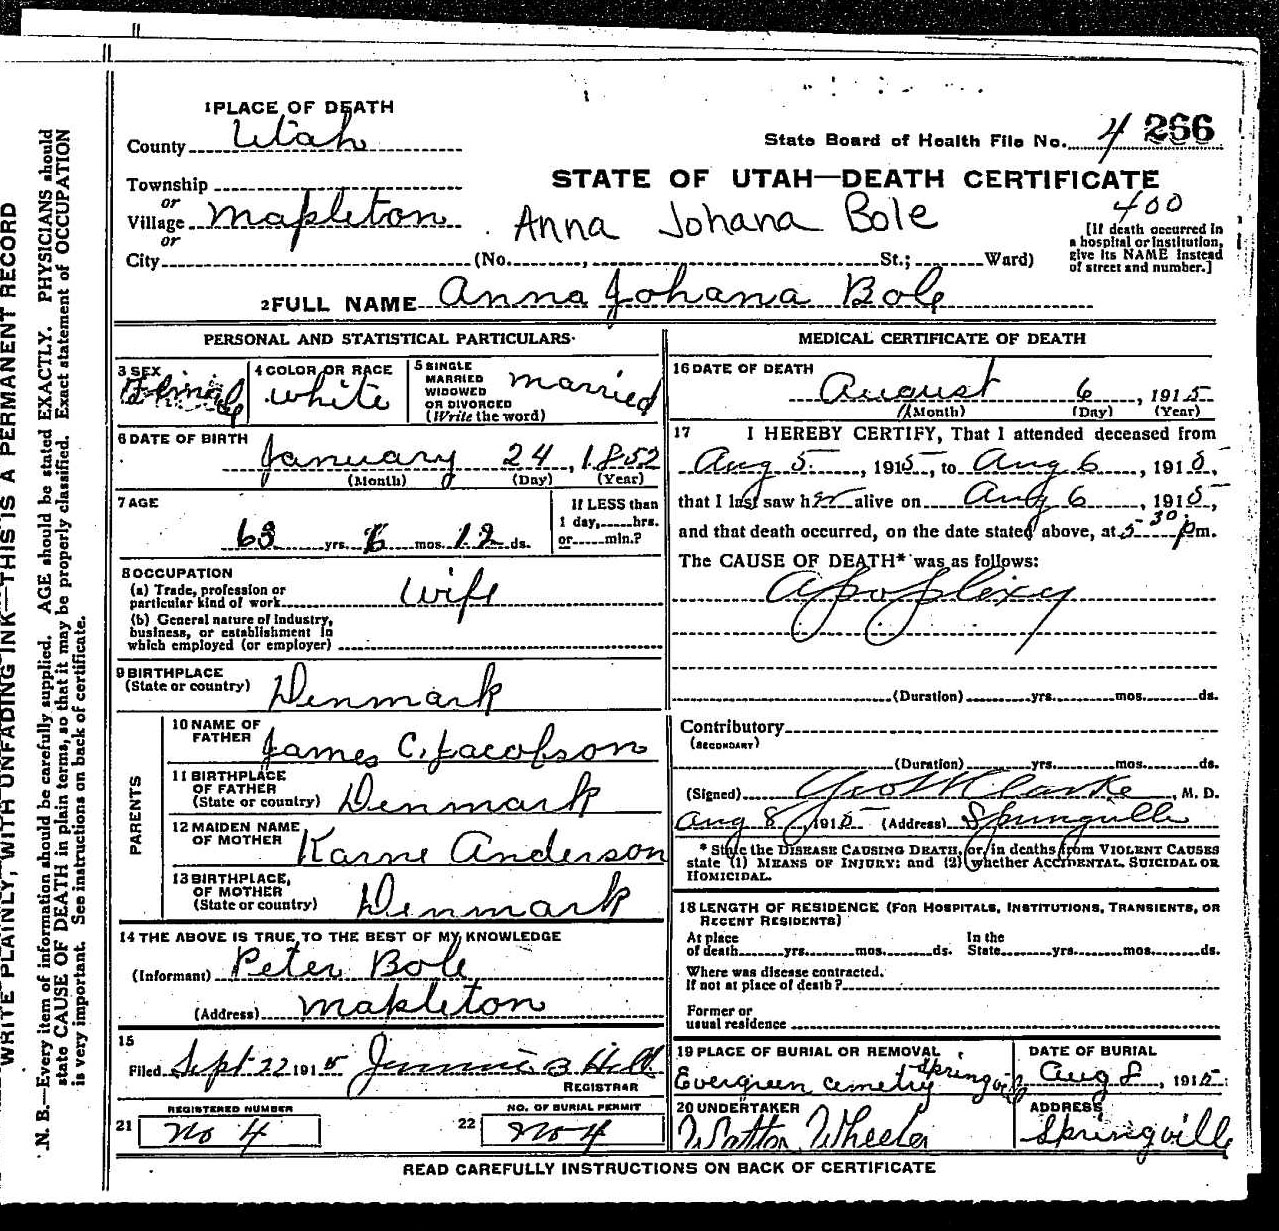 WRITE PLAINLY, WITH UNFADING INK—THIS IS A PERMANENT RECORD
N. B.—Every item of information should be carefully supplied. AGE should be stated EXACTLY. PHYSICIANS should
state CAUSE OF DEATH in plain terms, so that it may be properly classified. Exact statement of OCCUPATION
is very important. See instructions on back of certificate.
1 PLACE OF DEATH
County Utah
State Board of Health File No. 4 266
STATE OF UTAH—DEATH CERTIFICATE
Township
or
Village Mapleton
Anna Johana Bole
400
or
[If death occurred in
a hospital or institution,
give its NAME instead
of street and number.]
City (No. , St.; Ward)
2 FULL NAME Anna Johana Bole
PERSONAL AND STATISTICAL PARTICULARS
3 SEX Female
4 COLOR OR RACE white
5 SINGLE
MARRIED
WIDOWED
OR DIVORCED
(Write the word)
married
6 DATE OF BIRTH
January 24, 1852
(Month) (Day) (Year)
7 AGE
63 yrs. 6 mos. 12 ds.
If LESS than
1 day, hrs.
or min.?
8 OCCUPATION
(a) Trade, profession or
particular kind of work wife
(b) General nature of Industry,
business, or establishment in
which employed (or employer)
9 BIRTHPLACE
(State or country) Denmark
PARENTS
10 NAME OF
FATHER James C. Jacobson
11 BIRTHPLACE
OF FATHER
(State or country) Denmark
12 MAIDEN NAME
OF MOTHER Karne Anderson
13 BIRTHPLACE,
OF MOTHER
(State or country) Denmark
14 THE ABOVE IS TRUE TO THE BEST OF MY KNOWLEDGE
(Informant) Peter Bole
(Address) Mapleton
15
Filed Sept 22 1915 Jimmie B Hill
REGISTRAR
21 REGISTERED NUMBER
No 4
22 NO. OF BURIAL PERMIT
No 4
MEDICAL CERTIFICATE OF DEATH
16 DATE OF DEATH
August 6, 1915
(Month) (Day) (Year)
17 I HEREBY CERTIFY, That I attended deceased from
Aug 5, 1915, to Aug 6, 1915,
that I last saw her alive on Aug 6, 1915,
and that death occurred, on the date stated above, at 5 30 pm.
The CAUSE OF DEATH* was as follows:
Apoplexy
(Duration) yrs. mos. ds.
Contributory
(SECONDARY)
(Duration) yrs. mos. ds.
(Signed) Geo M Clarke, M. D.
Aug 8, 1915 (Address) Springville
* State the DISEASE CAUSING DEATH, or, in deaths from VIOLENT CAUSES
state (1) MEANS OF INJURY; and (2) whether ACCIDENTAL, SUICIDAL OR
HOMICIDAL.
18 LENGTH OF RESIDENCE (FOR HOSPITALS, INSTITUTIONS, TRANSIENTS, OR
RECENT RESIDENTS)
At place
of death yrs. mos. ds.
In the
State yrs. mos. ds.
Where was disease contracted.
If not at place of death?
Former or
usual residence
19 PLACE OF BURIAL OR REMOVAL
Evergreen cemetry
DATE OF BURIAL
Aug 8, 1915
20 UNDERTAKER
Wheeler
ADDRESS
Springville
READ CAREFULLY INSTRUCTIONS ON BACK OF CERTIFICATE